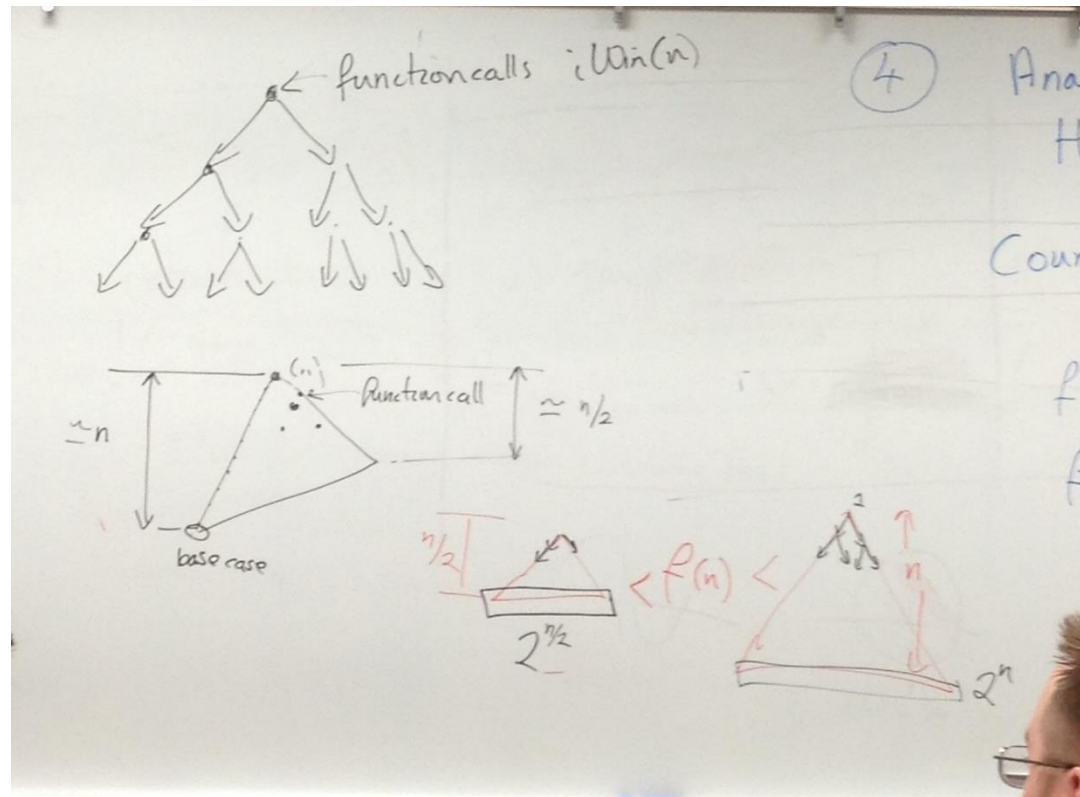 function calls iWin(n)
4 Ana
H
Coun
(n)
function call
≃n
≃ n/2
base case
n/2
2^n/2
< f(n) <
n
2^n